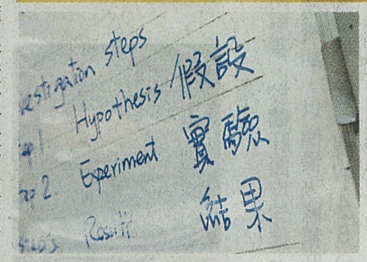 estigation steps
ep 1. Hypothesis 假設
ep 2. Experiment 實驗
Result 結果